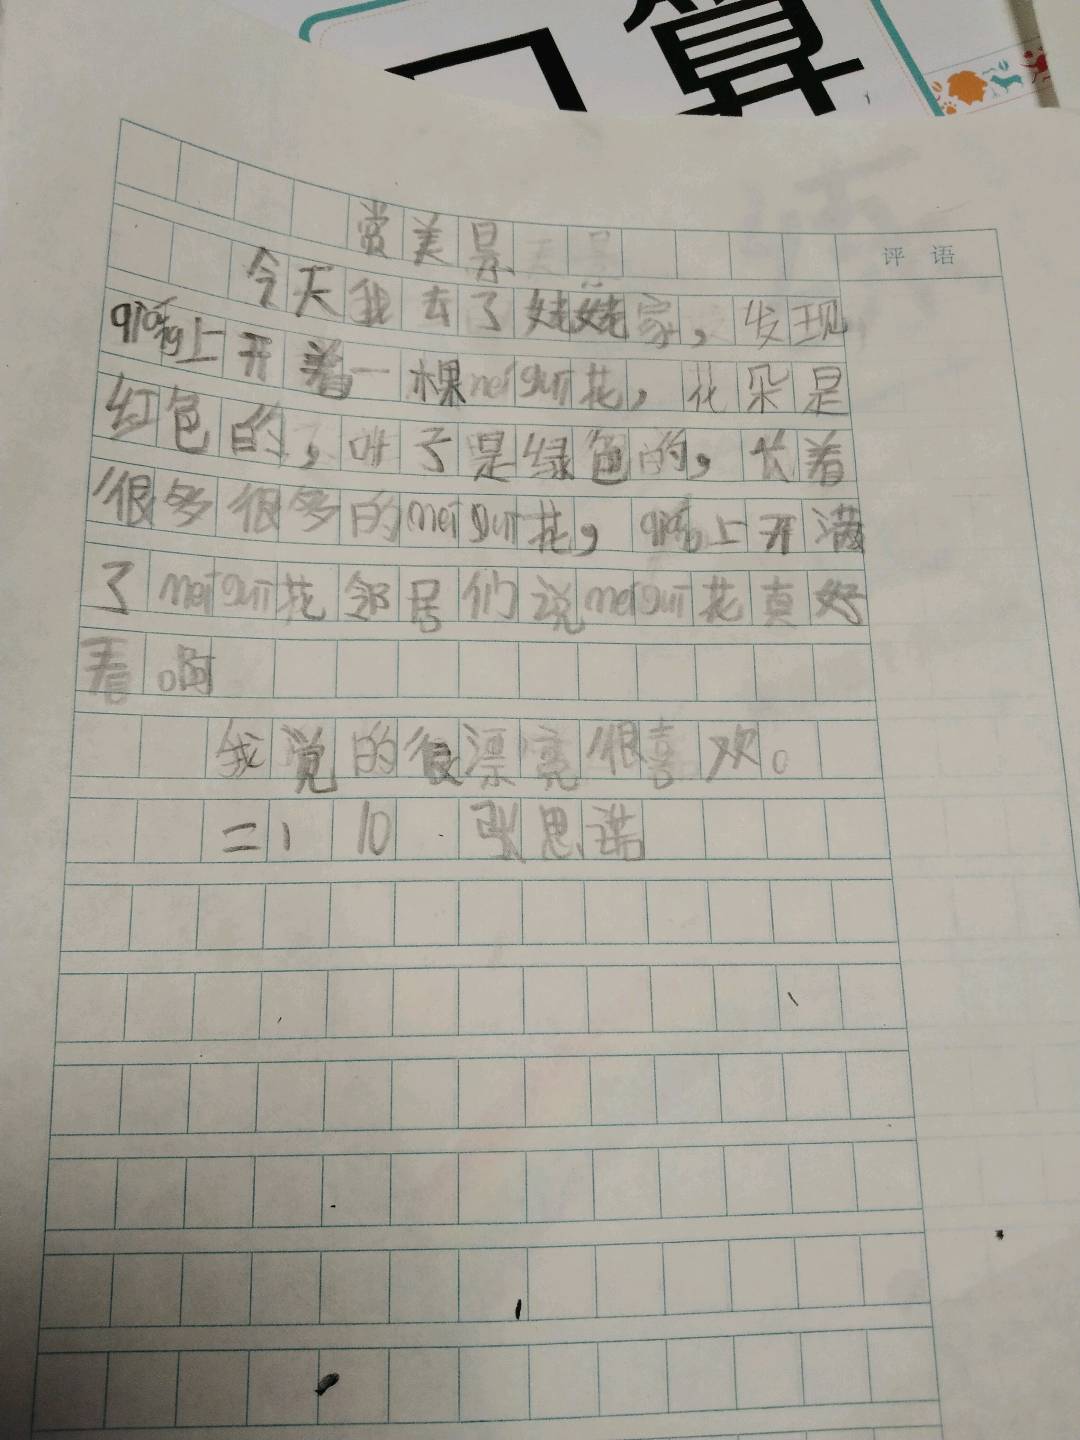 算
赏美景
评语
今天我去了姥姥家，发现
qiáng上开着一棵mei gui花，花朵是
红色的，叶子是绿色的，长着
很多很多的mei gui花，qiáng上开满
了mei gui花邻居们说mei gui花真好
看啊。
我觉的很漂亮很喜欢。
二1 10 张思诺